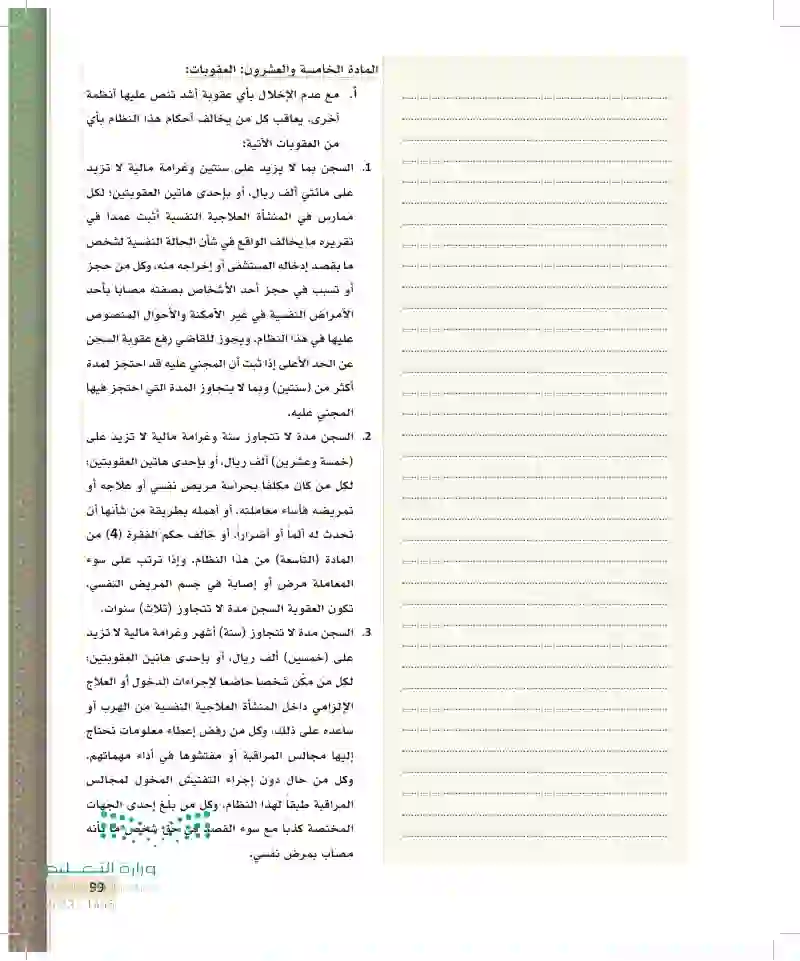 المادة الخامسة والعشرون: العقوبات:
أ. مع عدم الإخلال بأي عقوبة أشد تنص عليها أنظمة
أخرى، يعاقب كل من يخالف أحكام هذا النظام بأي
من العقوبات الآتية:
1. السجن بما لا يزيد على سنتين وغرامة مالية لا تزيد
على مائتي ألف ريال، أو بإحدى هاتين العقوبتين؛ لكل
ممارس في المنشأة العلاجية النفسية أثبت عمداً في
تقريره ما يخالف الواقع في شأن الحالة النفسية لشخص
ما بقصد إدخاله المستشفى أو إخراجه منه، وكل من حجز
أو تسبب في حجز أحد الأشخاص بصفته مصابا بأحد
الأمراض النفسية في غير الأمكنة والأحوال المنصوص
عليها في هذا النظام. ويجوز للقاضي رفع عقوبة السجن
عن الحد الأعلى إذا ثبت أن المجني عليه قد احتجز لمدة
أكثر من (سنتين) وبما لا يتجاوز المدة التي احتجز فيها
المجني عليه.
2. السجن مدة لا تتجاوز سنة وغرامة مالية لا تزيد على
(خمسة وعشرين) ألف ريال، أو بإحدى هاتين العقوبتين؛
لكل من كان مكلفا بحراسة مريض نفسي أو علاجه أو
تمريضه فأساء معاملته، أو أهمله بطريقة من شأنها أن
تحدث له ألماً أو أضراراً، أو خالف حكم الفقرة (4) من
المادة (التاسعة) من هذا النظام. وإذا ترتب على سوء
المعاملة مرض أو إصابة في جسم المريض النفسي،
تكون العقوبة السجن مدة لا تتجاوز (ثلاث) سنوات.
3. السجن مدة لا تتجاوز (ستة) أشهر وغرامة مالية لا تزيد
على (خمسين) ألف ريال، أو بإحدى هاتين العقوبتين؛
لكل من مكّن شخصا خاضعا لإجراءات الدخول أو العلاج
الإلزامي داخل المنشأة العلاجية النفسية من الهرب أو
ساعده على ذلك، وكل من رفض إعطاء معلومات تحتاج
إليها مجالس المراقبة أو مفتشوها في أداء مهماتهم،
وكل من حال دون إجراء التفتيش المخول لمجالس
المراقبة طبقاً لهذا النظام، وكل من بلّغ إحدى الجهات
المختصة كذبا مع سوء القصد في حق شخص ما بأنه
مصاب بمرض نفسي.
وزارة التعليم
99